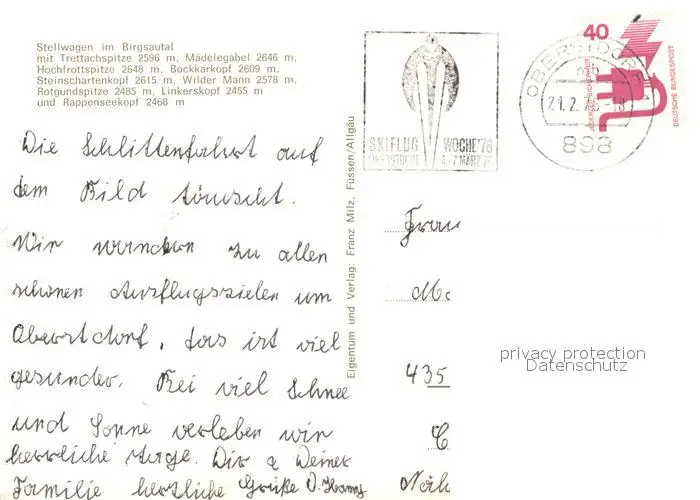 Stellwagen im Birgsautal
mit Trettachspitze 2596 m, Mädelegabel 2646 m,
Hochfrottspitze 2648 m, Bockkarkopf 2609 m,
Steinschartenkopf 2615 m, Wilder Mann 2578 m,
Rotgundspitze 2485 m, Linkerskopf 2455 m
und Rappenseekopf 2468 m
Die Schlittenfahrt auf
dem Bild täuscht.
Wir wandern zu allen
schönen Ausflugszielen um
Oberstdorf, das ist viel
gesünder. Bei viel Schnee
und Sonne verleben wir
herrliche Tage. Dir & Deiner
Familie herzliche Grüße
Eigentum und Verlag: Franz Milz, Füssen/Allgäu
SKIFLUG WOCHE '76
OBERSTDORF 4.-7. MÄRZ 76
OBERSTDORF
21.2.76-18
898
40
JEDERZEIT SICHERHEIT
DEUTSCHE BUNDESPOST
Frau
435
privacy protection
Datenschutz